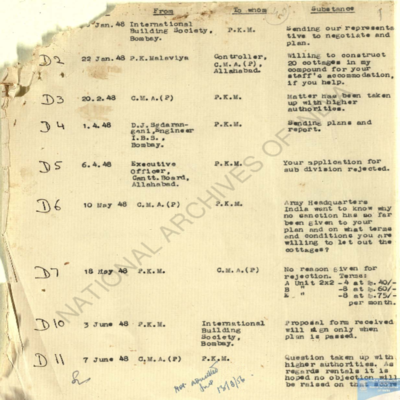 From To whom Substance
Jan. 48 International Building Society, Bombay. P.K.M. Sending our representative to negotiate and plan.
D2 22 Jan. 48 P.K.Malaviya Controller, C.M.A.(P), Allahabad. Willing to construct 20 cottages in my compound for your staff's accommodation, if you help.
D3 20.2.48 C.M.A.(P) P.K.M. Matter has been taken up with higher authorities.
D4 1.4.48 D.J. Engineer I.B.S., Bombay. P.K.M. Sending plans and report.
D5 6.4.48 Executive Officer, Cantt.Board, Allahabad. P.K.M. Your application for sub division rejected.
D6 10 May 48 C.M.A.(P) P.K.M. Army Headquarters India want to know why no sanction has so far been given to your plan and on what terms and conditions you are willing to let out the cottages?
D7 18 May 48 P.K.M. C.M.A.(P) No reason given for rejection. Terms: A Unit 2x2 -4 at Rs.40/- B " -8 at Rs.60/- -8 at Rs.75/- per month
D10 3 June 48 P.K.M. International Building Society, Bombay. Proposal form received will sign only when plan is passed.
D11 7 June 48 C.M.A.(P) P.K.M. Question taken up with higher authorities. As regards rentals it is hoped no objection will be raised on that score
NATIONAL ARCHIVES OF